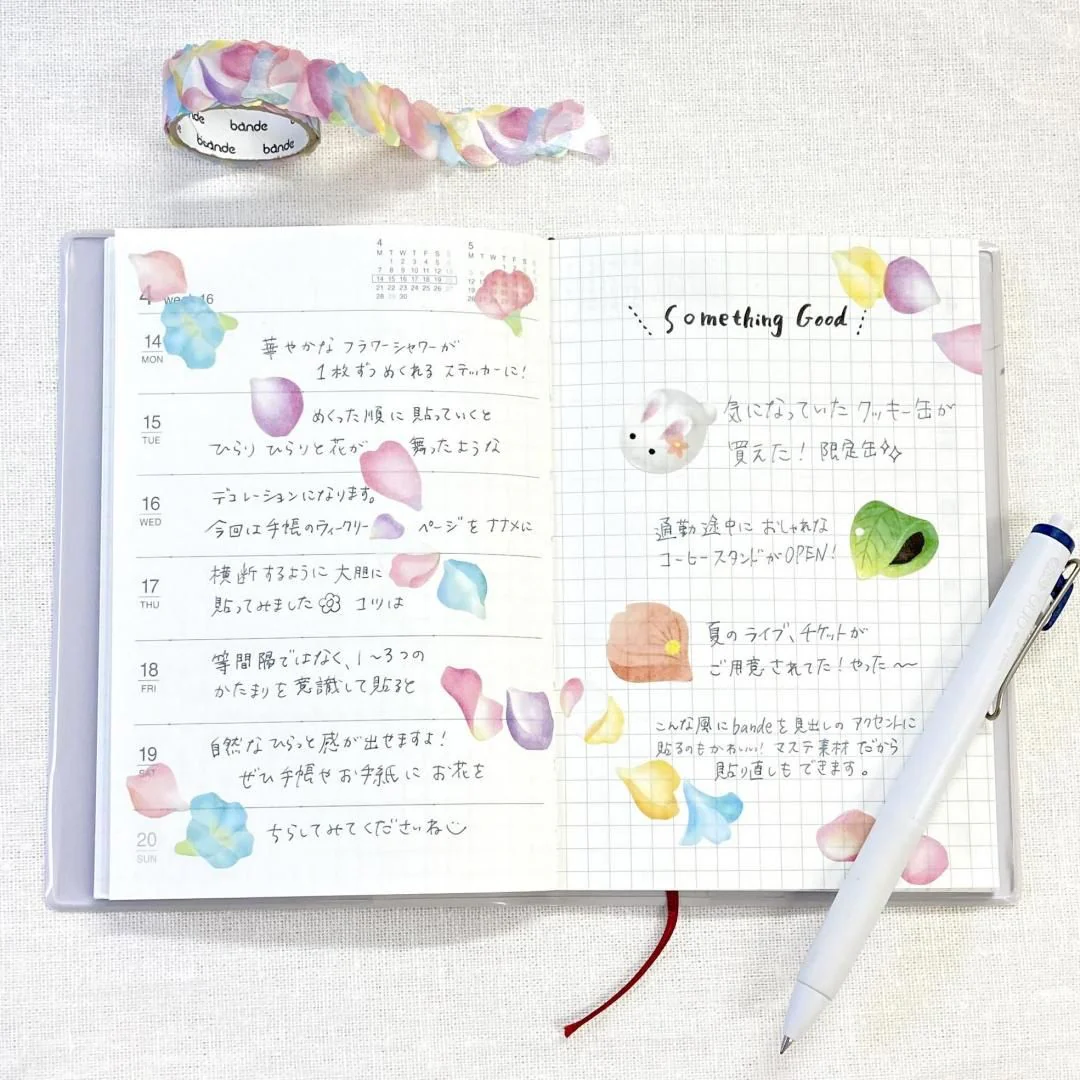 bande
bande
bande
bande
4 week 16
4
M T W T F S S
1 2 3 4 5 6
7 8 9 10 11 12 13
14 15 16 17 18 19 20
21 22 23 24 25 26 27
28 29 30
5
M T W T F S
14
MON
華やかな フラワーシャワーが
1枚ずつ めくれる ステッカーに!
15
TUE
めくった順に 貼っていくと
ひらり ひらりと花が 舞ったような
16
WED
デコレーションになります。
今回は手帳のウィークリー ページを ナナメに
17
THU
横断するように 大胆に
貼ってみました コツは
18
FRI
等間隔ではなく、1〜3つの
かたまりを 意識して貼ると
19
SAT
自然な ひらっと感が出せますよ!
ぜひ手帳やお手紙に お花を
20
SUN
ちらしてみてくださいね
Something Good
気になっていた クッキー缶が
買えた! 限定缶
通勤途中に おしゃれな
コーヒースタンドがOPEN!
夏のライブ、チケットが
ご用意されてた! やった〜〜
こんな風にbandeを見出しの アクセントに
貼るのもかわいい! マステ素材だから
貼り直しもできます。